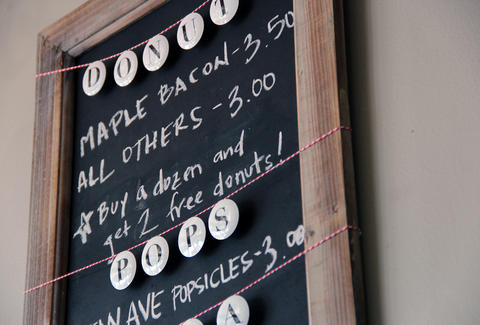 DONUT
MAPLE BACON-3.50
ALL OTHERS-3.00
☆ Buy a dozen and
get 2 free donuts!
POPS
AVE POPSICLES-3.00
A